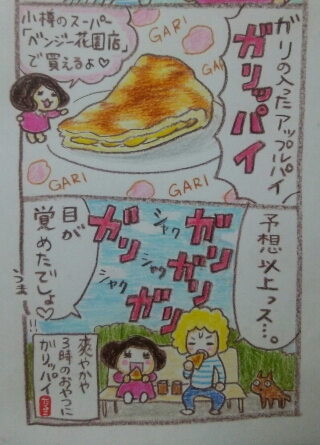 ガリの入ったアップルパイ
ガリッパイ
小樽のスーパー
「ベンジー花園店」
で買えるよ♡
GARI
GARI
GARI
GARI
GARI
予想以上っス…。
ガリ
ガリ
ガリ
ガリ
シャク
シャク
シャク
目が
覚めたでしょ♡
うまっ!!
爽やかや
3時のおやつに
ガリッパイ